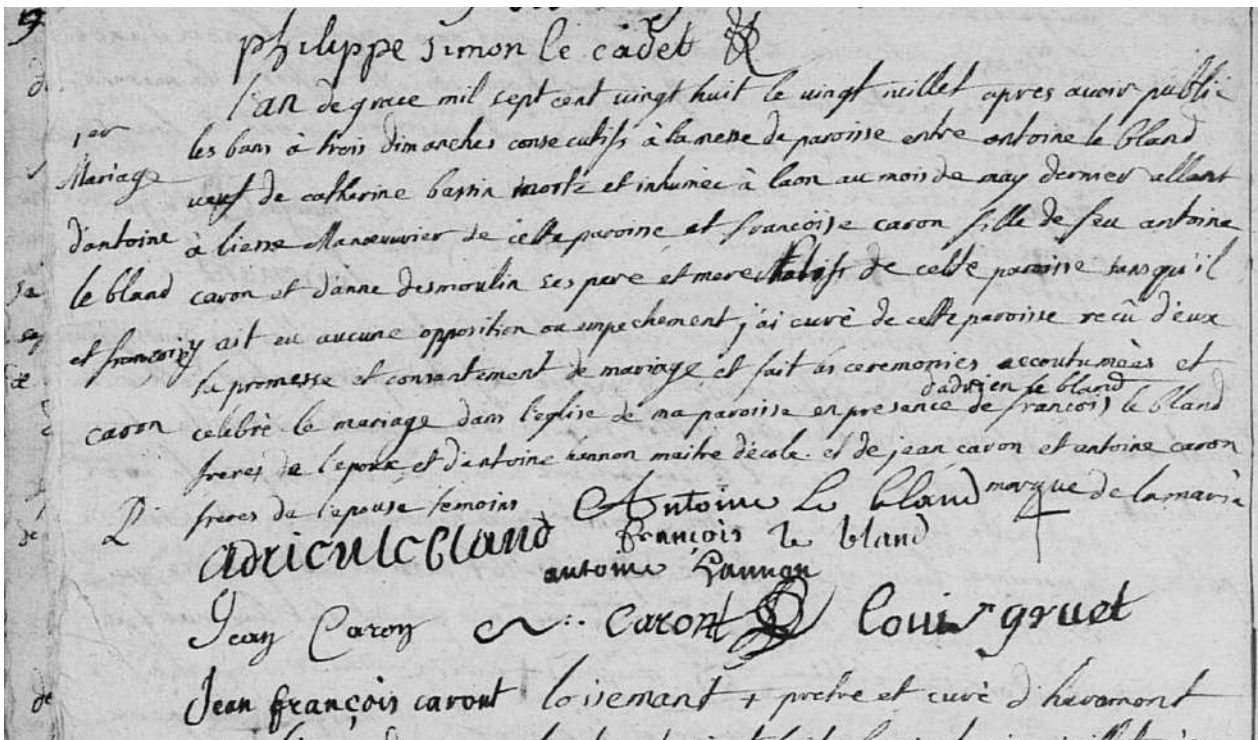 philippe simon le cadet
l'an de grace mil sept cent vingt huit le vingt juillet apres avoir publie
les bans à trois dimanches consecutifs à la messe de paroisse entre antoine le bland
veuf de catherine bassin morte et inhumée à laon au mois de may dernier allant
à liesse Manouvrier de cette paroisse et francoise caron fille de feu antoine
caron et d'anne desmoulin ses pere et mere de cette paroisse sans qu'il
y ait eu aucune opposition ou empechement, j'ai curé de cette paroisse recû d'eux
la promesse et consentement de mariage et fait les ceremonies accoutumées et
d'adrien le bland
celebré le mariage dans l'eglise de ma paroisse en presence de francois le bland
freres de l'epoux et d'antoine hannon maitre d'école et de jean caron et antoine caron
freres de l'epouse temoins
1er
Mariage
d'antoine
le bland
et francoise
caron
Antoine le bland marque de la mariée
adrien le bland françois le bland
antoine hannon
Jean Caron Caront louis gruet
Jean françois caront lossemant + prêtre et curé d'haramont